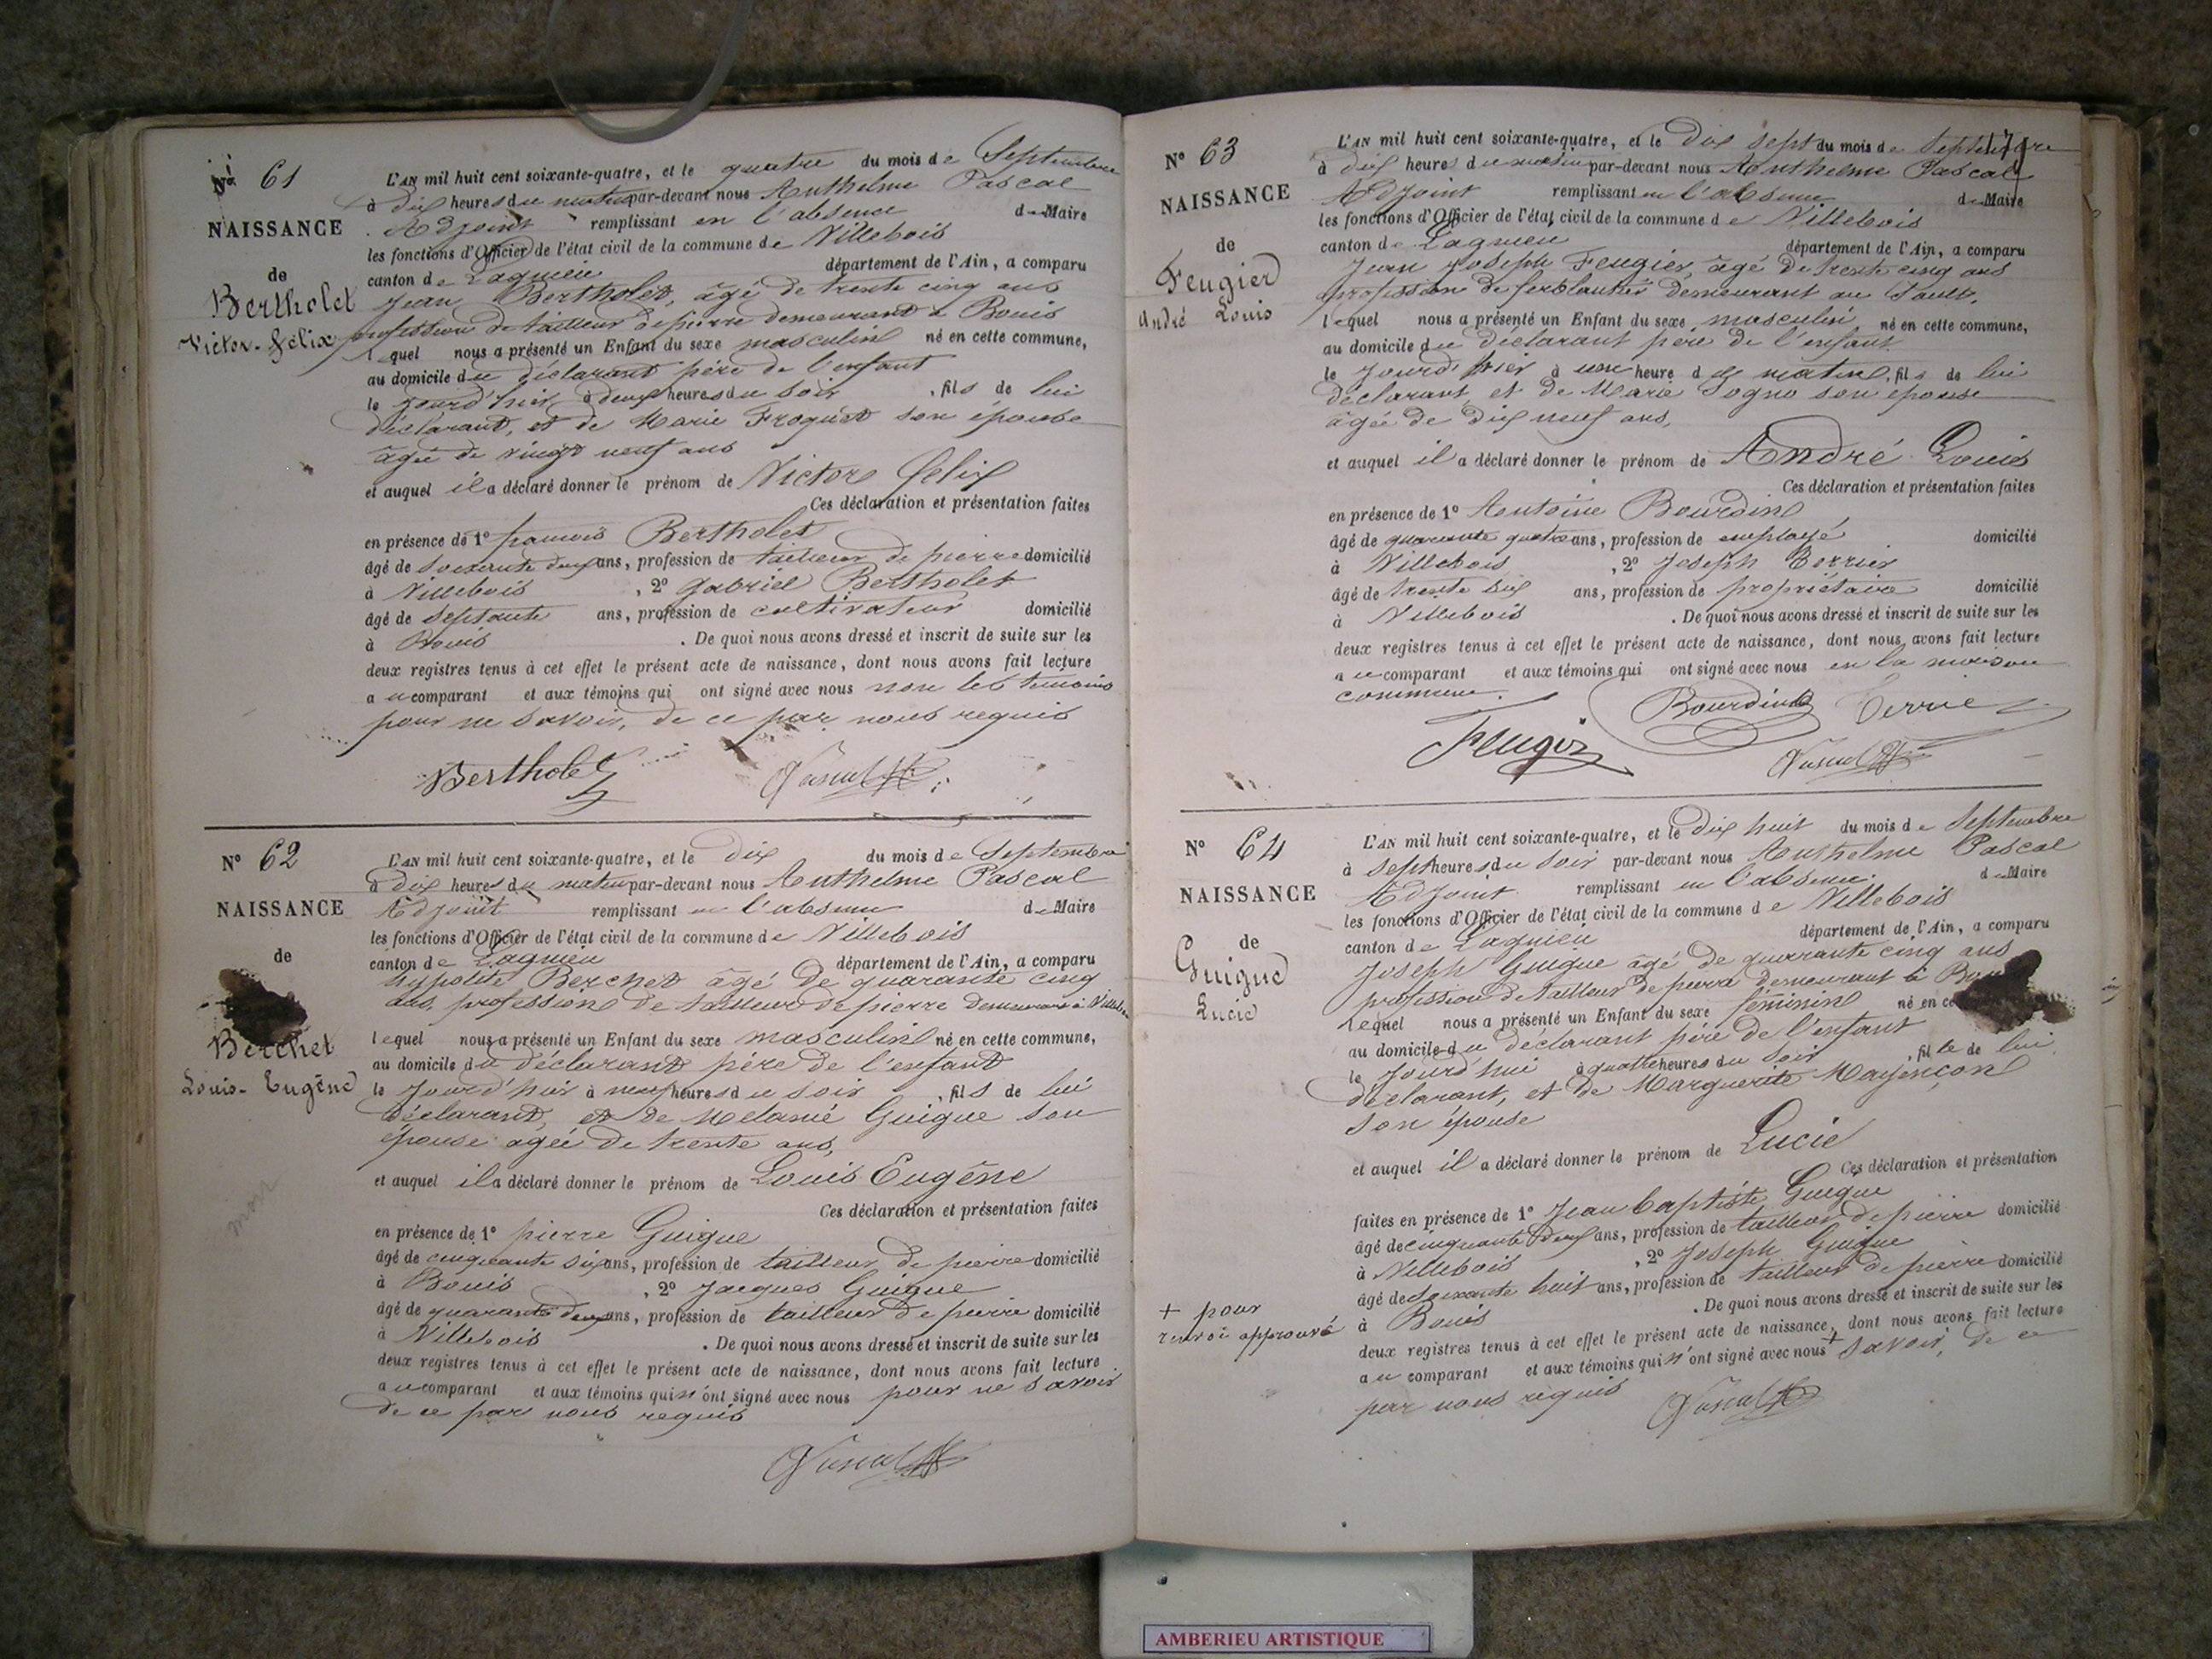 N° 61
NAISSANCE
de
Bertholet
Victor-Félix
L'AN mil huit cent soixante-quatre, et le quatre du mois de Septembre
à dix heures du matin par-devant nous Anthelme Pascal
Adjoint remplissant en l'absence du Maire
les fonctions d'Officier de l'état civil de la commune de Villebois
canton de Lagnieu département de l'Ain, a comparu
Jean Bertholet, âgé de trente cinq ans
profession de tailleur de pierre demeurant à Bouis
lequel nous a présenté un Enfant du sexe masculin né en cette commune,
au domicile du déclarant père de l'enfant
le jourd'hier à deux heures du soir, fils de lui
déclarant, et de Marie Froquet son épouse
âgée de vingt neuf ans
et auquel il a déclaré donner le prénom de Victor Felix
Ces déclaration et présentation faites
en présence de 1° françois Bertholet
âgé de soixante deux ans, profession de tailleur de pierre domicilié
à Villebois, 2° gabriel Bertholet
âgé de septante ans, profession de cultivateur domicilié
à Bouis . De quoi nous avons dressé et inscrit de suite sur les
deux registres tenus à cet effet le présent acte de naissance, dont nous avons fait lecture
au comparant et aux témoins qui ont signé avec nous non les temoins
pour ne savoir, de ce par nous requis
Bertholet Pascal
N° 62
NAISSANCE
de
Berchet
Louis-Eugène
L'AN mil huit cent soixante-quatre, et le dix du mois de Septembre
à dix heures du matin par-devant nous Anthelme Pascal
Adjoint remplissant en l'absence du Maire
les fonctions d'Officier de l'état civil de la commune de Villebois
canton de Lagnieu département de l'Ain, a comparu
hypolite Berchet âgé de quarante cinq
ans, profession de tailleur de pierre demeurant à Villebois
lequel nous a présenté un Enfant du sexe masculin né en cette commune,
au domicile du déclarant père de l'enfant
le jourd'hier à neuf heures du soir, fils de lui
déclarant, et de Melanie Guigue son
épouse agée de trente ans,
et auquel il a déclaré donner le prénom de Louis Eugène
Ces déclaration et présentation faites
en présence de 1° pierre Guigue
âgé de cinquante six ans, profession de tailleur de pierre domicilié
à Bouis, 2° Jacques Guigue
âgé de quarante deux ans, profession de tailleur de pierre domicilié
à Villebois . De quoi nous avons dressé et inscrit de suite sur les
deux registres tenus à cet effet le présent acte de naissance, dont nous avons fait lecture
au comparant et aux témoins qui n'ont signé avec nous pour ne savoir
de ce par nous requis
Pascal
N° 63
NAISSANCE
de
Feugier
André Louis
L'AN mil huit cent soixante-quatre, et le dix sept du mois de Septembre
à dix heures du matin par-devant nous Anthelme Pascal
Adjoint remplissant en l'absence du Maire
les fonctions d'Officier de l'état civil de la commune de Villebois
canton de Lagnieu département de l'Ain, a comparu
Jean Joseph Feugier, âgé de trente cinq ans
profession de ferblantier demeurant au Sault,
lequel nous a présenté un Enfant du sexe masculin né en cette commune,
au domicile du déclarant père de l'enfant
le jourd'hier à une heure du matin, fils de lui
déclarant et de Marie Sogno son épouse
âgée de dix neuf ans,
et auquel il a déclaré donner le prénom de André Louis
Ces déclaration et présentation faites
en présence de 1° Antoine Bourdin
âgé de quarante quatre ans, profession de employé domicilié
à Villebois, 2° Joseph Berrier
âgé de trente six ans, profession de propriétaire domicilié
à Villebois . De quoi nous avons dressé et inscrit de suite sur les
deux registres tenus à cet effet le présent acte de naissance, dont nous avons fait lecture
au comparant et aux témoins qui ont signé avec nous en la maison
commune.
Feugier Bourdin Pascal
N° 64
NAISSANCE
de
Guigue
Lucie
L'AN mil huit cent soixante-quatre, et le dix huit du mois de Septembre
à sept heures du soir par-devant nous Anthelme Pascal
Adjoint remplissant en l'absence du Maire
les fonctions d'Officier de l'état civil de la commune de Villebois
canton de Lagnieu département de l'Ain, a comparu
Joseph Guigue âgé de quarante cinq ans
profession de tailleur de pierre demeurant à
lequel nous a présenté un Enfant du sexe féminin né en
au domicile du déclarant père de l'enfant
le jourd'hui à quatre heures du soir, fille de lui
déclarant, et de Marguerite Mayençon
son épouse
et auquel il a déclaré donner le prénom de Lucie
Ces déclaration et présentation
faites en présence de 1° Jean baptiste Guigue
âgé de cinquante deux ans, profession de tailleur de pierre domicilié
à Villebois, 2° Joseph Guigue
âgé de soixante huit ans, profession de tailleur de pierre domicilié
à Bouis . De quoi nous avons dressé et inscrit de suite sur les
deux registres tenus à cet effet le présent acte de naissance, dont nous avons fait lecture
au comparant et aux témoins qui n'ont signé avec nous + savoir, de ce
par nous requis
Pascal
+ pour
renvoi approuvé
AMBERIEU ARTISTIQUE